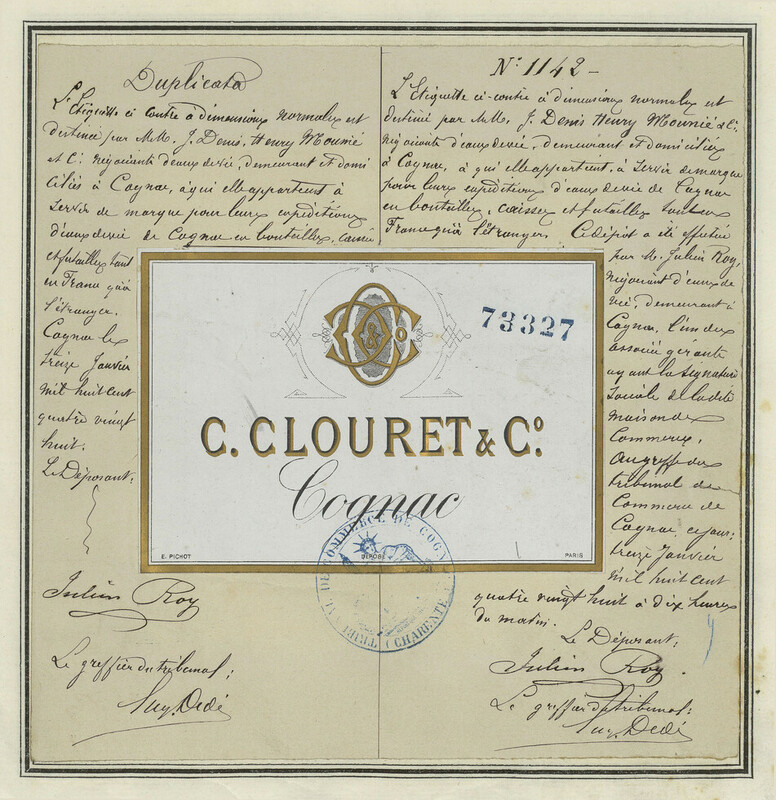 Duplicata
L'Etiquette ci contre à dimensions normales est
destinée par M.M. J. Denis, Henry Mounié
et Cⁱᵉ. négociants d'eaux de vie, demeurant et domi
ciliés à Cognac, à qui elle appartient à
servir de marque pour leurs expéditions
d'eaux de vie de Cognac en bouteilles, caisses
et futailles tant
en France qu'à
l'étranger.
Cognac le
treize Janvier
mil huit cent
quatre vingt
huit.
Le Déposant:
Julien Roy
Le greffier du tribunal;
Nº 1142 -
L'Etiquette ci-contre à dimensions normales est
destinée par M.M. J. Denis Henry Mounié & Cⁱᵉ.
négociants d'eaux de vie, demeurant et domiciliés
à Cognac, à qui elle appartient, à servir de marque
pour leurs expéditions d'eaux de vie de Cognac
en bouteilles, caisses et futailles tant en
France qu'à l'étranger. Ce dépôt a été effectué
par M. Julien Roy,
négociant d'eaux de
vie, demeurant à
Cognac, l'un des
associés gérants
ayant la signature
sociale de la dite
maison de
Commerce,
au greffe du
tribunal de
Commerce de
Cognac, ce jour:
treize Janvier
mil huit cent
quatre vingt huit à dix heures
du matin.
Le Déposant,
Julien Roy
Le greffier du tribunal:
73327
C. CLOURET & Cº.
Cognac
E. PICHOT
DÉPOSÉ
PARIS
TRIBAL DE COMMERCE DE COGNAC
(CHARENTE)